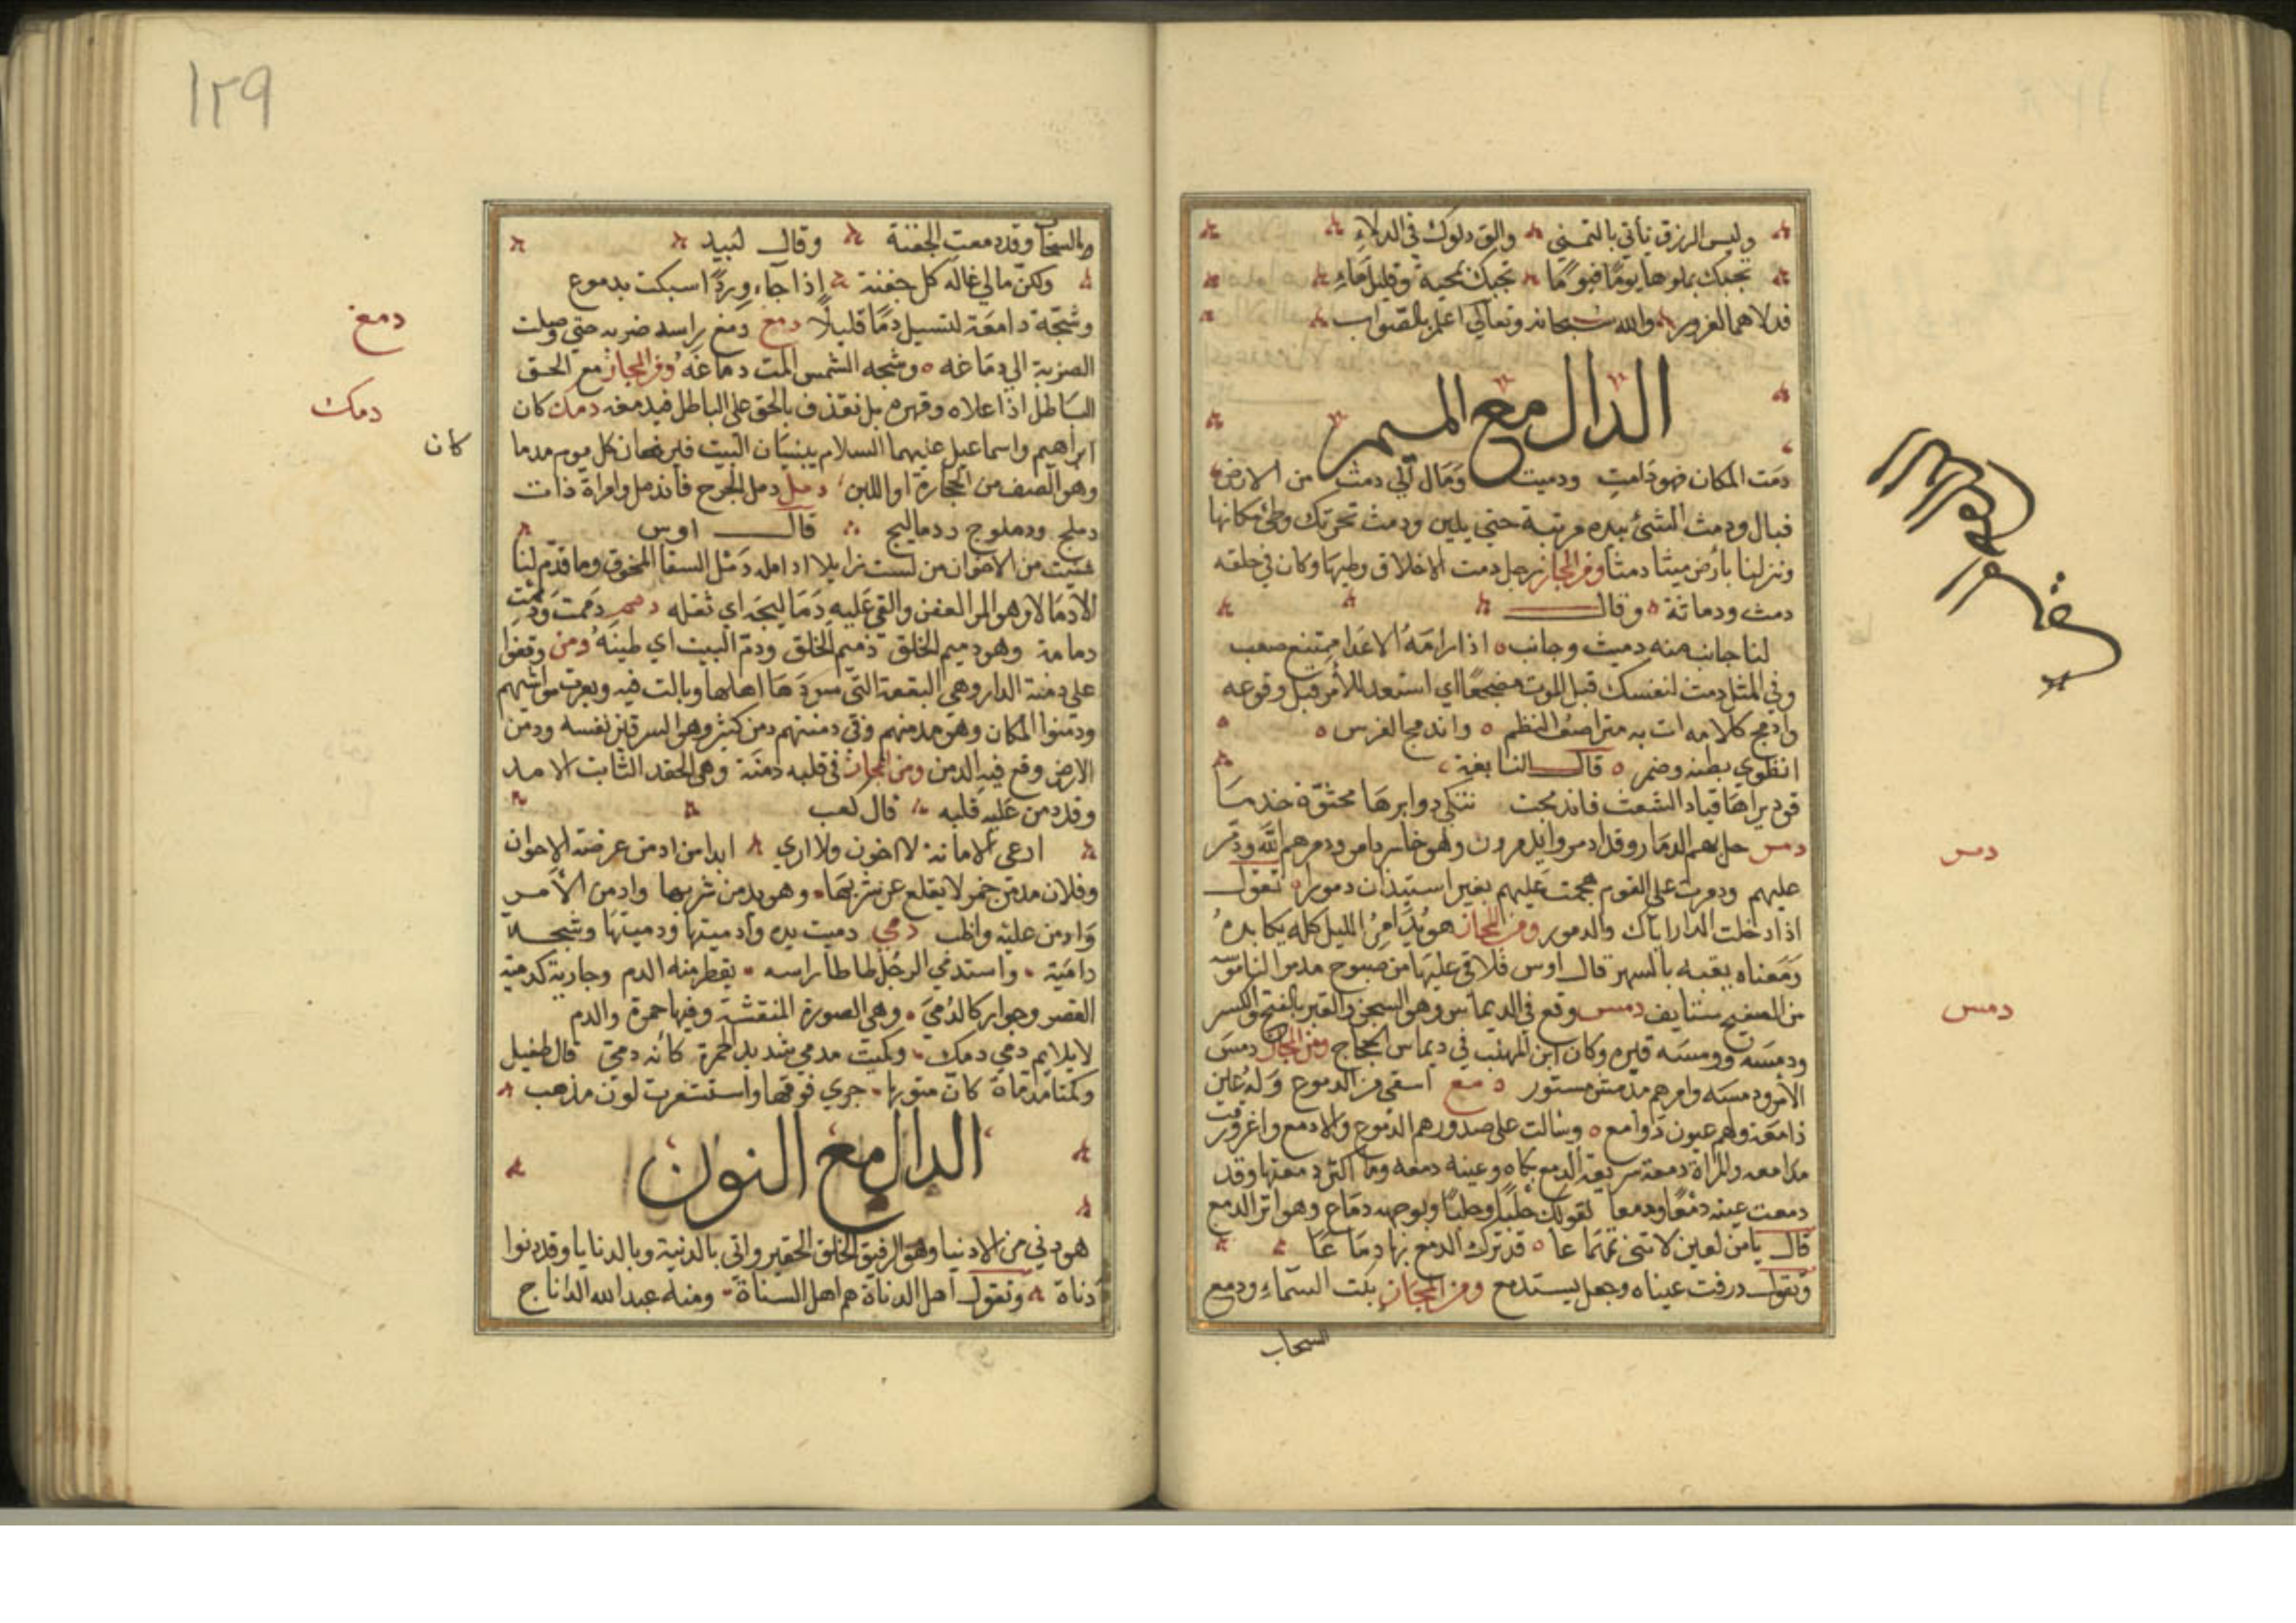 وليس الرزق يأتي بالتمني والق دلوك في الدلاء
تجئك بملوها يوما فيوما تجئك بحمية وقليل ماء
فدلاهما بغرور والله سبحانه وتعالي اعلم بالصواب
الدال مع الميم
دمث المكان فهو دامث ودميث ومال الي دمث من الارض
فبال ودمث الشئ بيده مرتبة حتي يلين ودمث تحرتك وطئ مكانها
ونزلنا بأرض ميثا دمثا ومن المجاز رجل دمث الاخلاق وطيها وكان في خلقه
دمث ودماثة وقال
لنا جانب منه دميث وجانب اذا رامه الاعدا ممتنع صعب
وفي المثل دمث لنفسك قبل الموت مضجعا اي استعد للأمر قبل وقوعه
وادمج كلامه ات به متراصف النظم واندمج الفرس
انطوي بطنه وضمر قال النابغة
قود براها قياد الشعث فاندمجت تنكي دوابرها محثوة خدما
دمر حل بهم الدمار وقد ادمروا يدمرون وهو خاسر دامر ودمرهم الله ودمر
عليهم ودمرت علي القوم هجمت عليهم بغير استيذان دمورا تقول
اذا دخلت الدار اياك والدمور ومن المجاز هو يدامر الليل كله يكابده
ومعناه يقبه بالسهر قال اوس فلاقي عليها من صبوح مدمرا لناموسه
من الصفيح سقايف دمس وقع في الديماس وهو السجن والقبر بالفتح والكسر
ودمسه ودمسه قبره وكان ابن المهلب في ديماس الحجاج ومن المجاز دمس
الأمر ودمسه وامرهم مدمس مستور دمع استقي من الدموع وله عين
دامعة ولهم عيون دوامع وسالت علي صدورهم الدموع والادمع واغرورقت
مدامعه وامراة دمعة سريعة الدمع بكاه وعينه دمعه وما اكثر دمعتها وقد
دمعت عينه دمعا ودمعا كقولك حلبا وحلبا وبوجهه دماع وهو اثر الدمع
قال يا من لعين لا تني تهماعا قد ترك الدمع بها دماعا
وتقول درفت عيناه وجعل يستدمع ومن المجاز بكت السماء ودمع
السحاب
دمر
دمس
١٢٩
والسحاب وقد دمعت الجفنة وقال لبيد
ولكن مالي غاله كل جفنة إذا جاء ورد اسبكت بدموع
وشجة دامعة لتسيل دما قليلا دمغ دمغ راسه ضربه حتي وصلت
الضربة الي دماغه وشجه الشمس المت دماغه ومن المجاز دمغ الحق
الباطل اذا علاه وقهره بل نقذف بالحق علي الباطل فيدمغه دمك كان
ابراهيم واسماعيل عليهما السلام يبنيان البيت فيرفعان كل يوم مدما
وهو الصف من الحجارة او اللبن دمل دمل الجرح فاندمل وامراة ذات
دملج ودملوج ودماليج قال اوس
شئت من الاخوان من لست زايلا ادامله دمل السقا المخرق وما قدم لنا
الادمالا وهو المر العفن والقي عليه دماليجه اي ثقله دمم دممت ودممت
دمامة وهو دميم الخلق ذميم الخلق ودم البيت اي طينه دمن وقفوا
علي دمنة الدار وهي البقعة التي سودها اهلها وبالت فيه وبعرت مواشيهم
ودمنوا المكان وهو مدمنهم وفي دمنتهم دمن كثير وهو السرقين نفسه ودمن
الارض وقع فيه الدمن ومن المجاز في قلبه دمنة وهي الحقد الثابت الامد
وقد دمن عليه قلبه قال كعب
ارعي الامانة لا اخون ولا اري ابدا من ادمن عرضة الاخوان
وفلان مدمن خمر لا يقلع عن شربها وهو يدمن شربها وادمن الأمر
وادمن عليه واظب دمي دميت يده وأدميتها ودميتها وشجة
دامية واستدمي الرجل طاطا راسه يقطر منه الدم وجارية كدمية
القصر وجوار كالدمي وهي الصورة المنقشة وفيها حمرة والدم
لا يلايم دمي دمك وكميت مدمي شديد الحمرة كأنه دمي قال طفيل
وكمتا مدماة كان متونها جري فوقها واستشعرت لون مذهب
الدال مع النون
هو دني من الادنيا وهو الرقيق الخلق الحقير واتي بالدنية وبالدنايا وقد دنوا
دناة وتقول اهل الدناة هم اهل السناة ومنه عبد الله الداناج
دمغ
دمك
كان